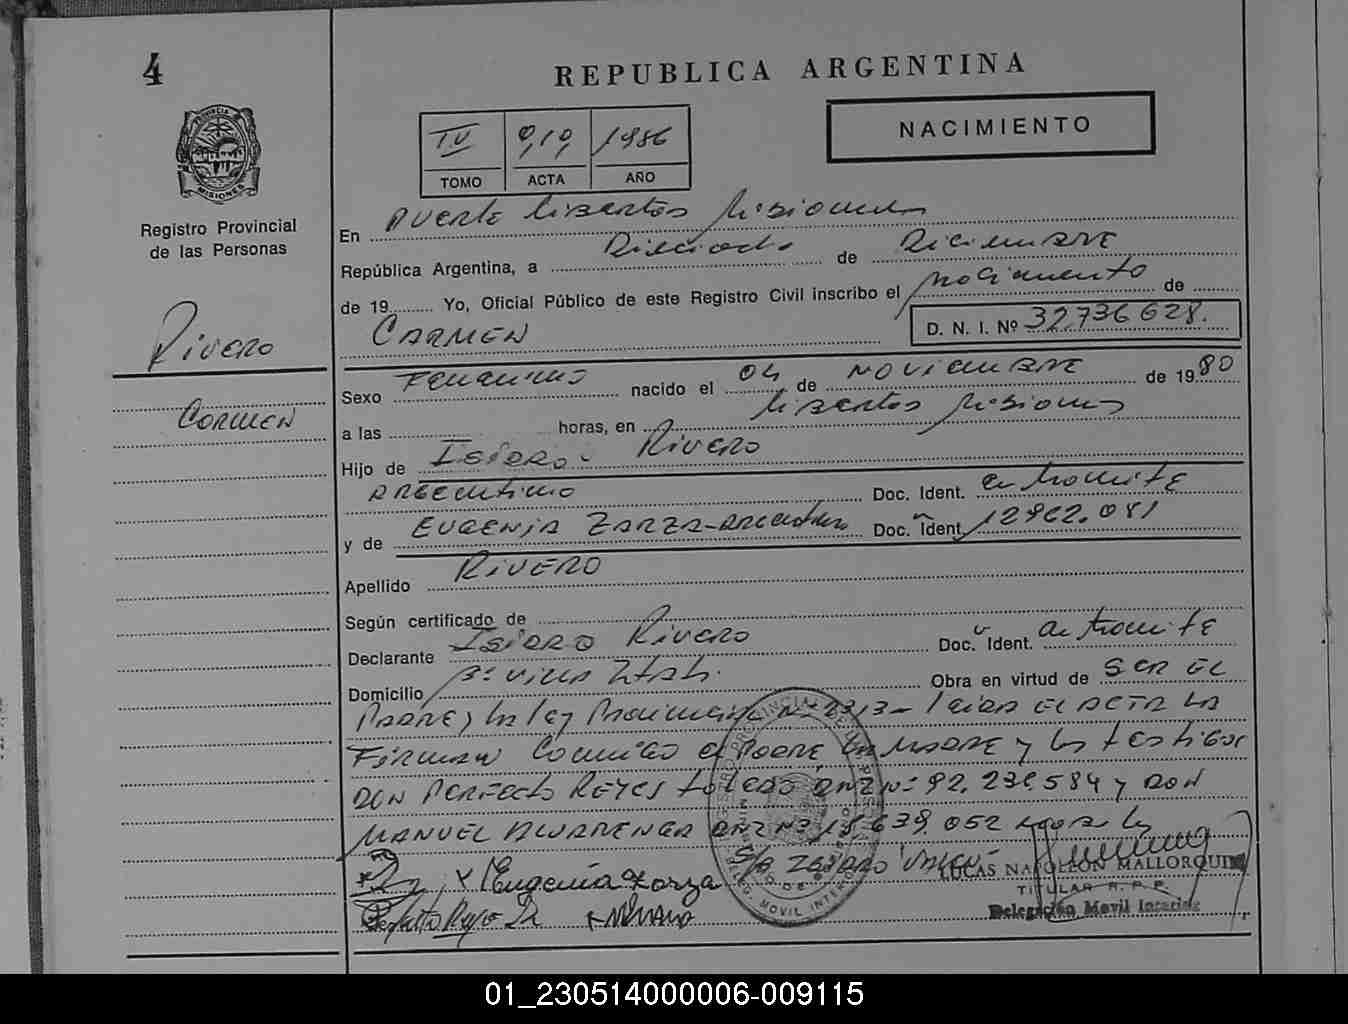 4
REPUBLICA ARGENTINA
NACIMIENTO
IV 919 1986
TOMO ACTA AÑO
PROVINCIA
MISIONES
Registro Provincial
de las Personas
En Puerto Libertad Misiones
República Argentina, a Dieciocho de Diciembre
de 19 Yo, Oficial Público de este Registro Civil inscribo el nacimiento de
CARMEN D. N. I. Nº 32.736.628.
RIVERO
CARMEN
Sexo Femenino nacido el 04 de NOVIEMBRE de 1980
a las horas, en Libertad Misiones
Hijo de ISIDRO RIVERO
ARGENTINO Doc. Ident. en tramite
y de EUGENIA ZARZA-ARGENTINA Doc. Ident. 12962.081
Apellido RIVERO
Según certificado de
Declarante ISIDRO RIVERO Doc. Ident. en tramite
Domicilio Bº VILLA Obra en virtud de SER EL
PADRE y la ley Provincial Nº 2313- leida EL ACTA LA
FIRMAN Conmigo el PADRE LA MADRE y los testigos
DON PERFECTO REYES TOLEDO DNI Nº 92.236.584 y DON
MANUEL ALVARENGA DNI Nº 18.639.052
S/B
Eugenia Zarza
LUCAS NAPOLEON MALLORQUIN
TITULAR R. P. P.
Delegación Movil Interior
01_230514000006-009115